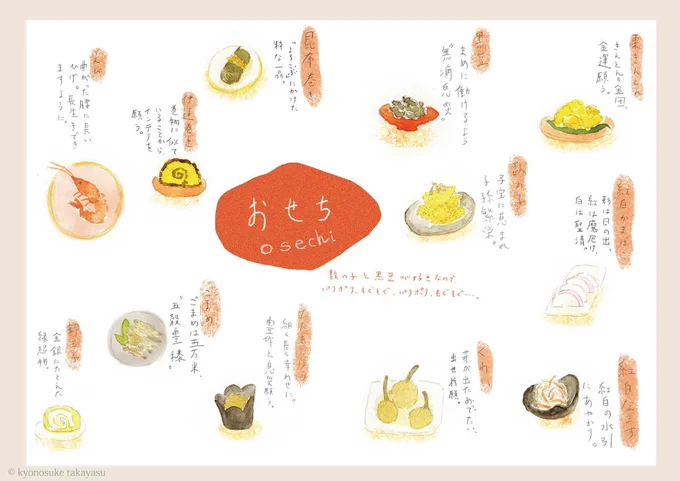 栗きんとん
きんとん=金団、
金運願う。
黒豆
まめに働けるよう
無病息災。
昆布巻き
よろこぶにかけた
粋な一品。
えび
曲がった腰に長い
ひげ。長生きでき
ますように。
伊達巻き
巻物に似て
いることから、
インテリを
願う。
おせち
osechi
数の子と黒豆が好きなので
パリポリ、もぐもぐ、パリポリ、もぐもぐ…。
数の子
子宝に恵まれ
子孫繁栄。
紅白かまぼこ
形は日の出、
紅は魔除け、
白は神聖、清。
ごまめ
ごまめは五万米、
五穀豊穣。
細く長く幸わせに。
豊作と息災願う。
錦玉子
金銀にたとえた
縁起物。
くわい
芽が出ためでたい、
出世祈願。
紅白なます
紅白の水引
にあやかり。
© kyonosuke takayasu